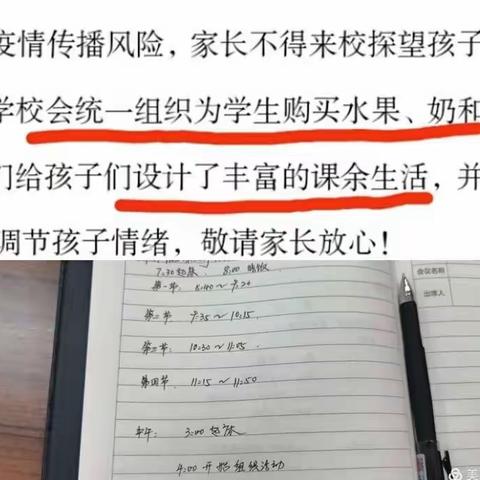 疫情传播风险，家长不得来校探望孩子
学校会统一组织为学生购买水果、奶和
们给孩子们设计了丰富的课余生活，并
调节孩子情绪，敬请家长放心！
7:30起床 8:00 晴饭
第一节: 8:40～9:20
第二节: 9:35～10:15
第三节: 10:30～11:05
第四节: 11:15～11:50
下午: 3:00 起床
4:00 开始组织活动
会议名称
出席人
美